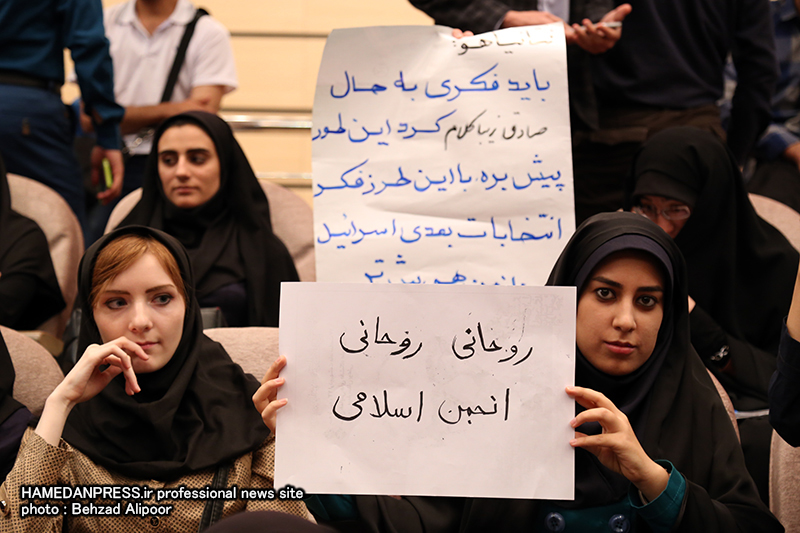 سانیا هو:
باید فکری به حال
صادق زیباکلام کرد این طور
پیش بره با این طرز فکر
انتخابات بعدی اسرائیل
روحانی روحانی
انجمن اسلامی
HAMEDANPRESS.ir professional news site
photo : Behzad Alipoor